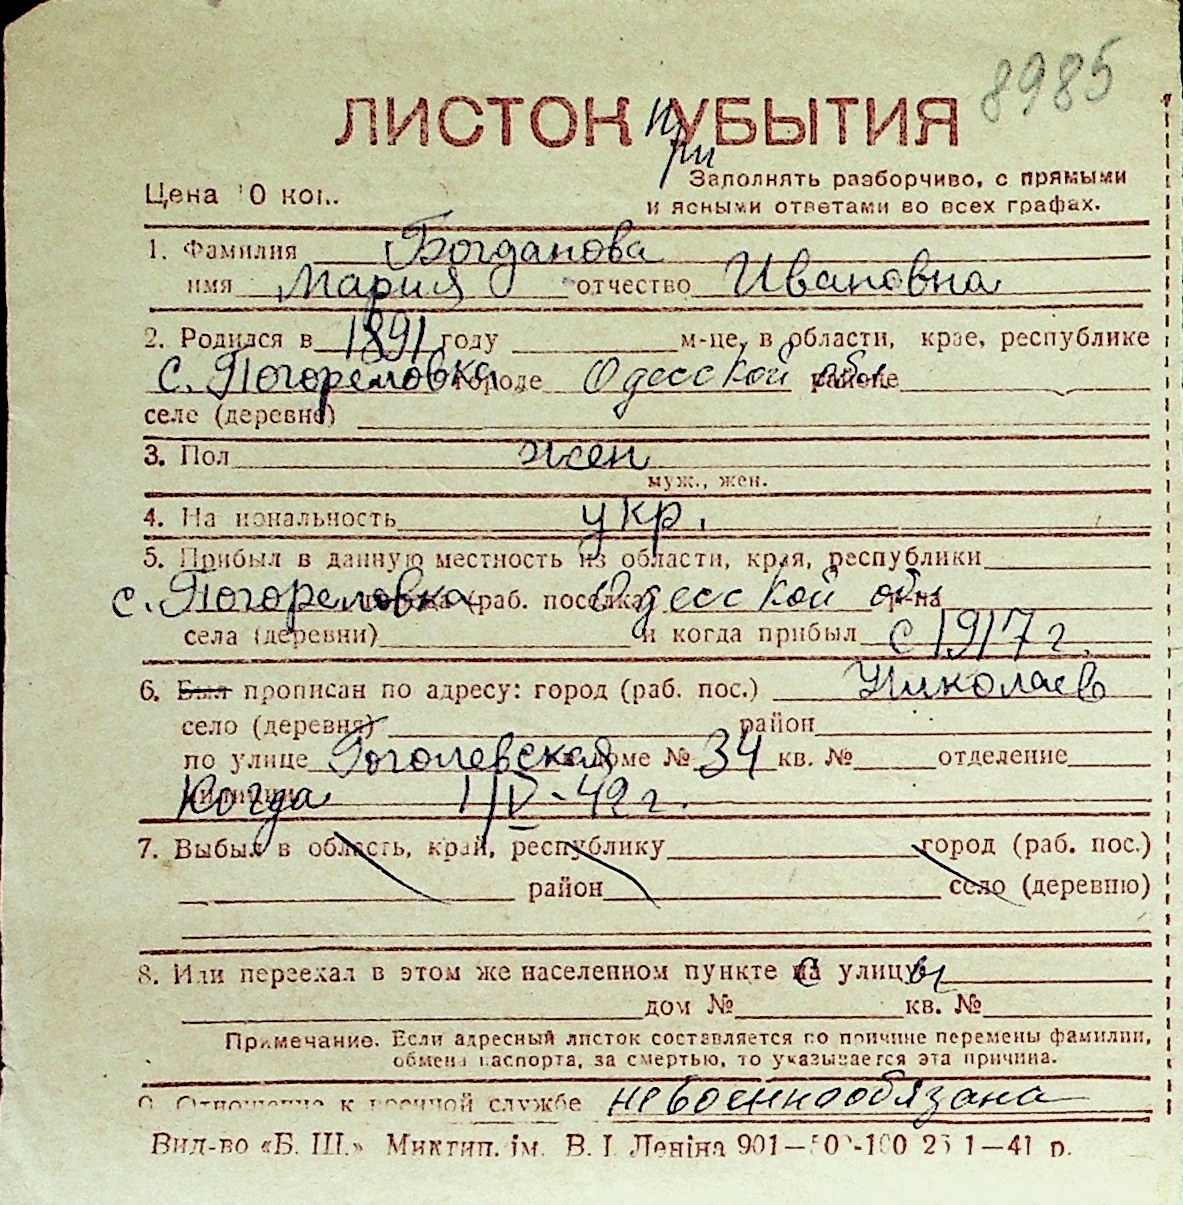 8985
ЛИСТОК УБЫТИЯ
при
Заполнять разборчиво, с прямыми
Цена 10 коп. и ясными ответами во всех графах.
1. Фамилия Богданова
имя Мария отчество Ивановна
2. Родился в 1891 году м-це, в области, крае, республике
с. Погореловка городе Одесской обл. районе
селе (деревне)
3. Пол жен
муж., жен.
4. Национальность укр.
5. Прибыл в данную местность из области, края, республики
с. Погореловка (раб. поселка) Одесской обл. р-на
села (деревни) и когда прибыл с 1917 г.
6. Был прописан по адресу: город (раб. пос.) Николаев
село (деревня) район
по улице Гоголевская доме № 34 кв. № отделение
Когда 1/V-42 г.
7. Выбыл в область, край, республику город (раб. пос.)
район село (деревню)
8. Или переехал в этом же населенном пункте с улицы
дом № кв. №
Примечание. Если адресный листок составляется по причине перемены фамилии,
обмена паспорта, за смертью, то указывается эта причина.
9. Отношение к военной службе невоеннообязана
Вид-во «Б. Ш.» Миктип. ім. В. І. Леніна 901— 1—41 р.